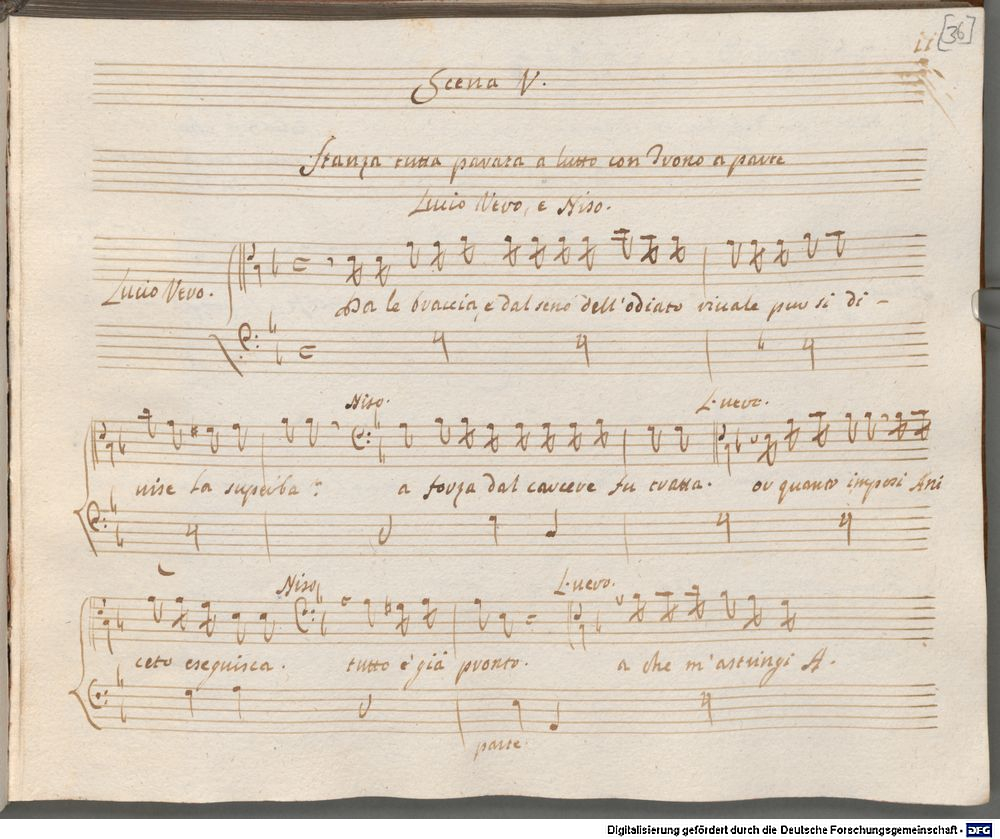 ii [36]
Scena V.
Stanza tutta parata a lutto con Trono a parte
Lucio Vero, e Niso.
Lucio Vero.
Da le braccia, e dal seno dell'odiato rivale pur si di -
Niso. L. vero.
vise la superba? a forza dal carcere fu tratta. or quanto imposi Ani
Niso L. vero.
ceto eseguisca. tutto è già pronto. a che m'astringi A.
parte
Digitalisierung gefördert durch die Deutsche Forschungsgemeinschaft - DFG